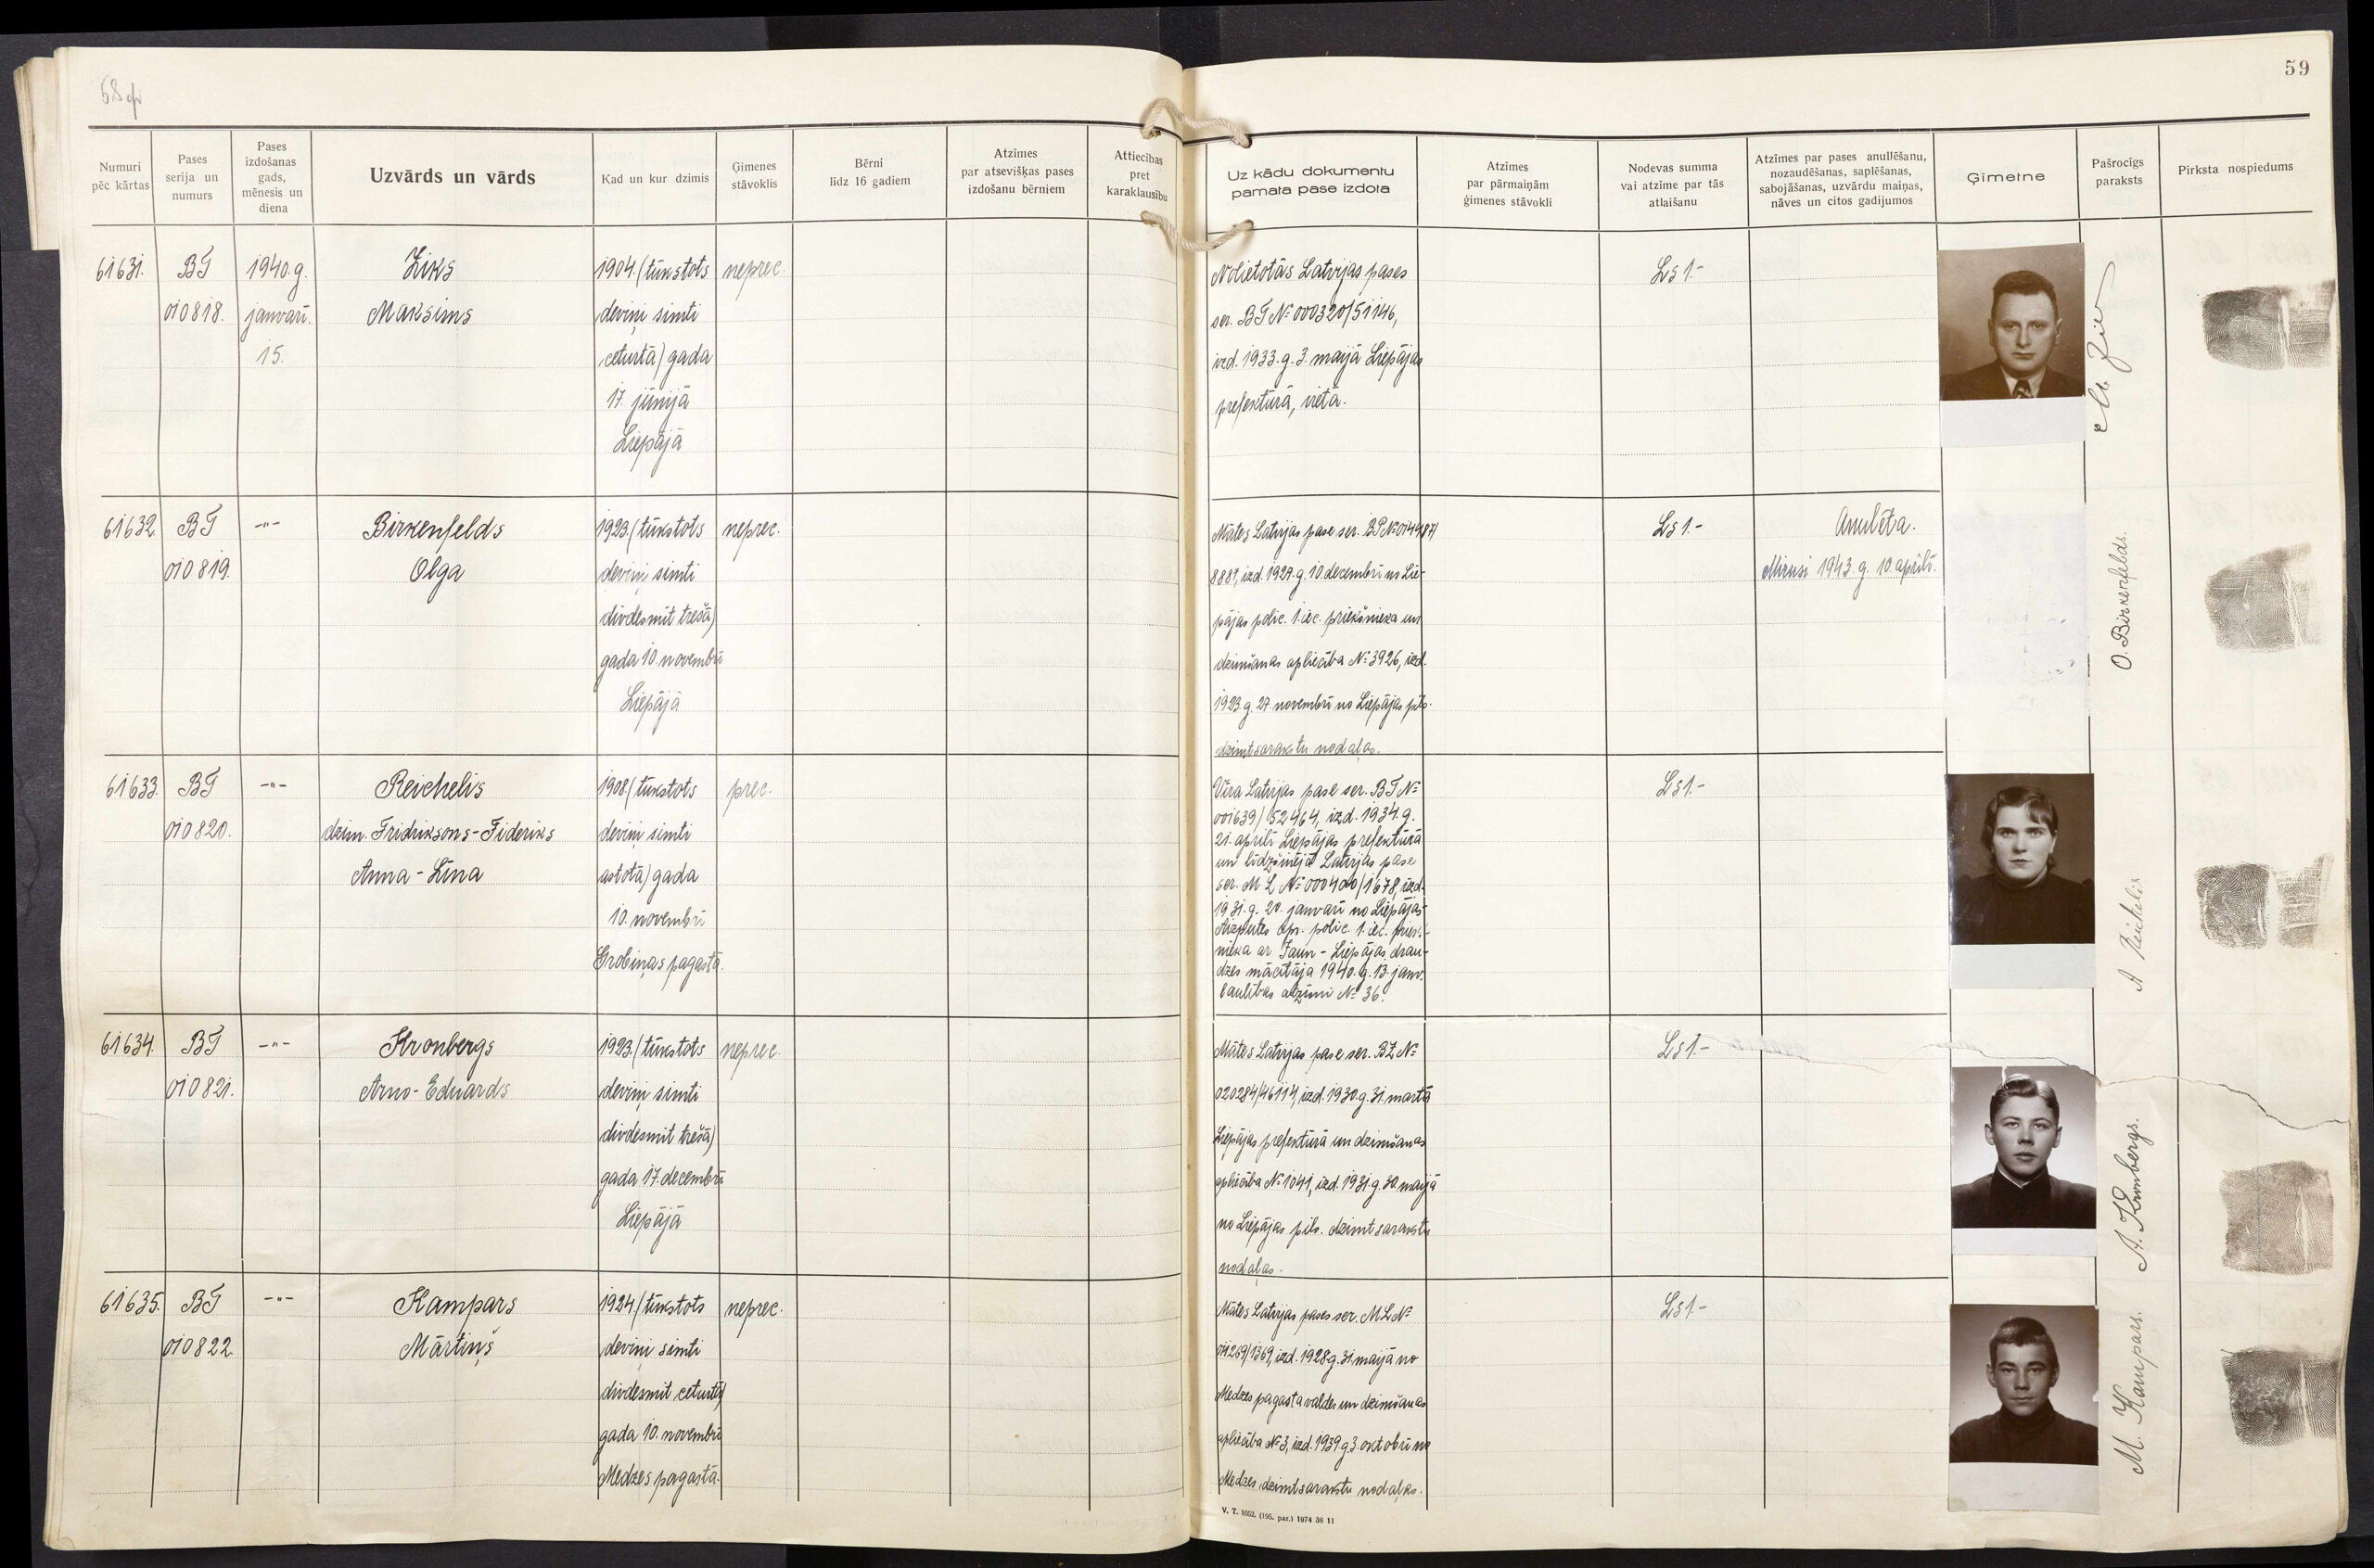 59
Numuri pēc kārtas
Pases serija un numurs
Pases izdošanas gads, mēnesis un diena
Uzvārds un vārds
Kad un kur dzimis
Ģimenes stāvoklis
Bērni līdz 16 gadiem
Atzīmes par atsevišķas pases izdošanu bērniem
Attiecības pret karaklausību
Uz kādu dokumentu pamata pase izdota
Atzīmes par pārmaiņām ģimenes stāvokli
Nodevas summa vai atzīme par tās atlaišanu
Atzīmes par pases anullēšanu, nozaudēšanas, saplēšanas, sabojāšanas, uzvārdu maiņas, nāves un citos gadijumos
Ģimetne
Pašrocīgs paraksts
Pirksta nospiedums
61631.
BT
010818.
1940.g.
janvarī.
15.
Ziks
Maksims
1904. (tūkstots
deviņi simti
ceturtā) gada
17. jūnijā
Liepājā
neprec.
Nolietotās Latvijas pases
ser. BT № 000320/51146,
izd. 1933. g. 3. maijā Liepājas
prefektūrā, vietā.
Ls 1.-
61632.
BT
010819.
-"-
Birkenfelds
Olga
1923. (tūkstots
deviņi simti
divdesmit trešā)
gada 10. novembrī
Liepājā
neprec.
Mātes Latvijas pase ser.
izd. 1927. g. 10 decembrī no Lie-
pājas polic. 1. iec. priekšnieka un
dzimšanas apliecība № 3926, izd.
1923. g. 27 novembrī no Liepājas pils.
dzimtsarakstu nodaļas.
Ls 1.-
Anulēta.
Mirusi 1943. g. 10. aprīlī.
O. Birkenfelds.
61633.
BT
010820.
-"-
Reichelis
dzim. Fridriksons-Fideriks
Anna-Līna
1908. (tūkstots
deviņi simti
astotā) gada
10. novembrī
Grobiņas pagastā.
prec.
Vīra Latvijas pase ser. BT №
001639/52464, izd. 1934. g.
21. aprīlī Liepājas prefektūrā
un līdzšinējā Latvijas pase
ser. M L № 000400/1678, izd.
1931. g. 20. janvarī no Liepājas-
Aizputes apr. polic. 1. iec. priekš-
nieka ar Jaun-Liepājas drau-
dzes mācītāja 1940. g. 13. janv.
laulības atzīmi № 36.
Ls 1.-
A Reichelis
61634.
BT
010821.
-"-
Kronbergs
Arno-Eduards
1923. (tūkstots
deviņi simti
divdesmit trešā)
gada 17. decembrī
Liepājā
neprec.
Mātes Latvijas pase ser. BZ №
020284/46114, izd. 1930. g. 31. martā
Liepājas prefektūrā un dzimšanas
apliecība № 1041, izd. 1931. g. 30. maijā
no Liepājas pils. dzimtsarakstu
nodaļas.
Ls 1.-
A. Kronbergs.
61635.
BT
010822.
-"-
Kampars
Mārtiņš
1924. (tūkstots
deviņi simti
divdesmit ceturtā)
gada 10. novembrī
Medzes pagastā.
neprec.
Mātes Latvijas pases ser. M L №
izd. 1928. g. 31. maijā no
Medzes pagasta valdes un dzimšanas
apliecība № 3, izd. 1939. g. 3. oktobrī no
Medzes dzimtsarakstu nodaļas.
Ls 1.-
M. Kampars.
V. T. 1652. (195. par.) 1974 38 11